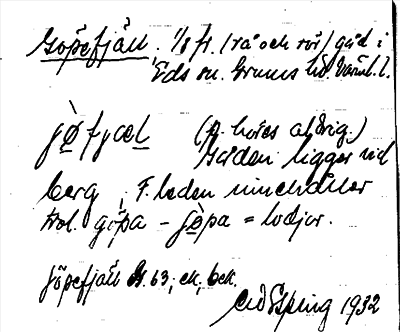 Göpefjäll. 1/8 fr. (rå och rör) gård i
Eds sn. Grums hd. Värml. l.
jøfjæl (A. höres aldrig.)
Gården ligger vid
berg, F. leden innehåller
trol. göpa - jøpa = lodjor.
Göpefjäll
63; ek. bek.
1932